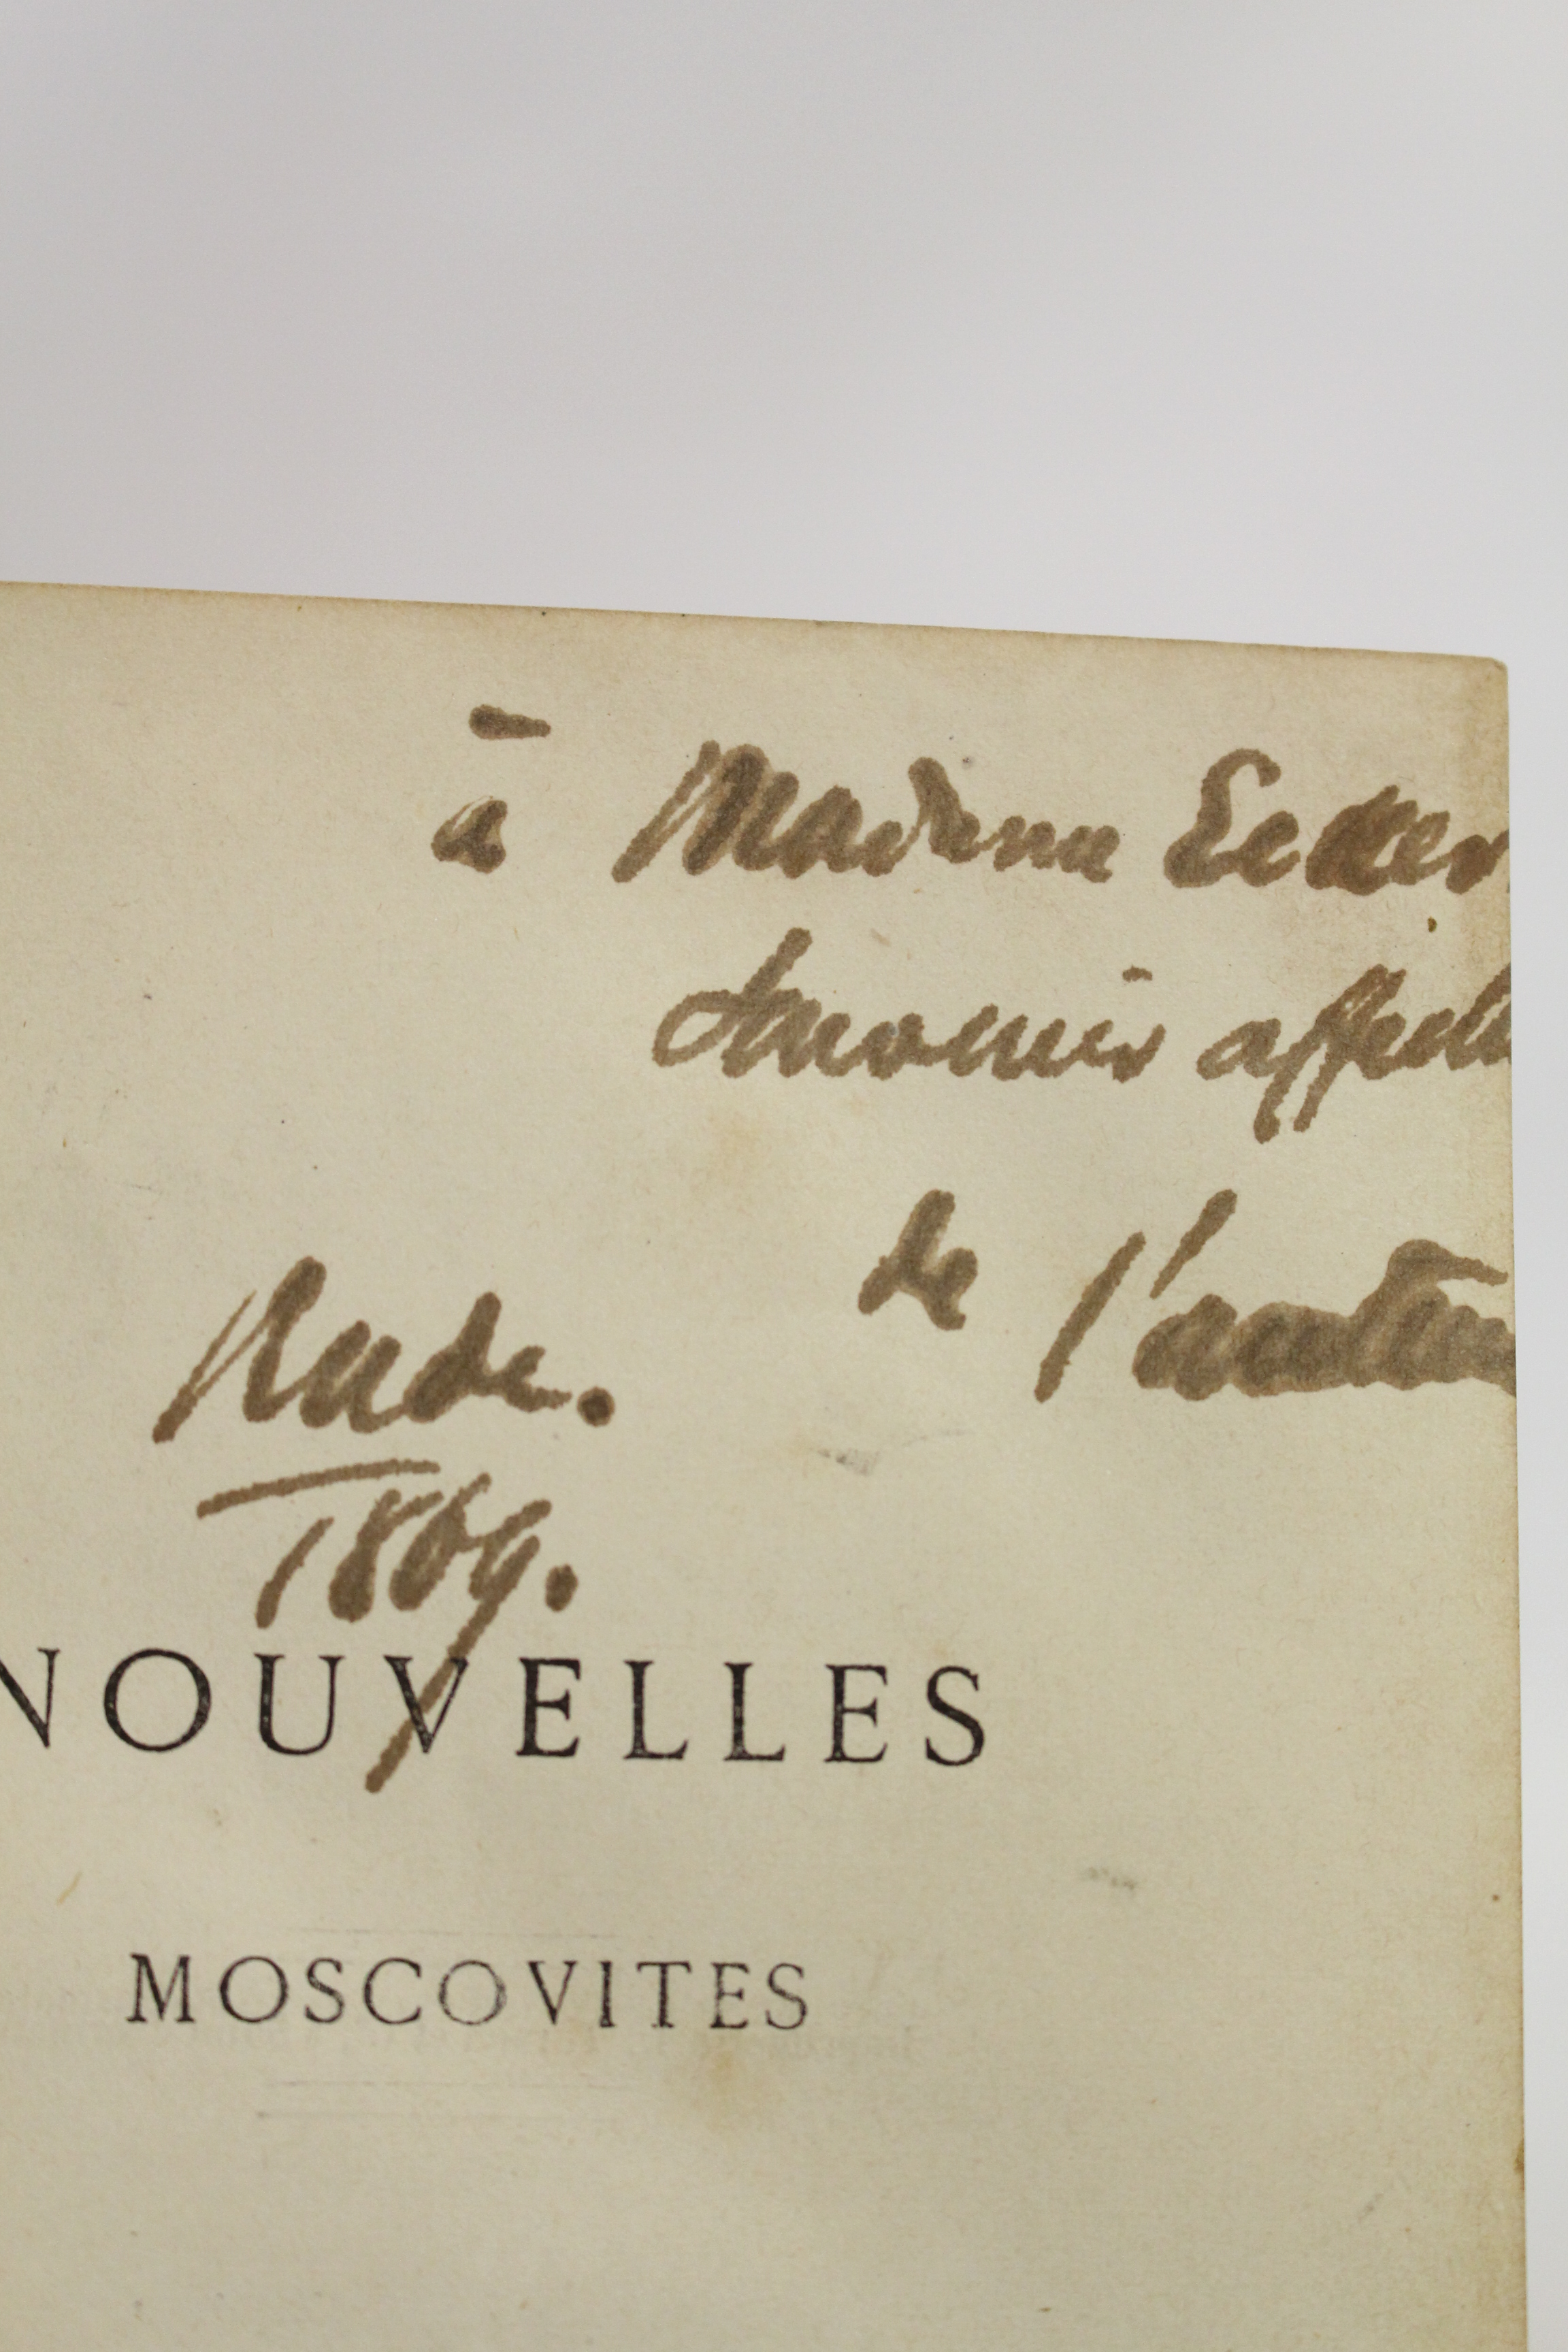 à Madame
Souvenir affectu
de l'auteu
Bade.
1869.
NOUVELLES
MOSCOVITES